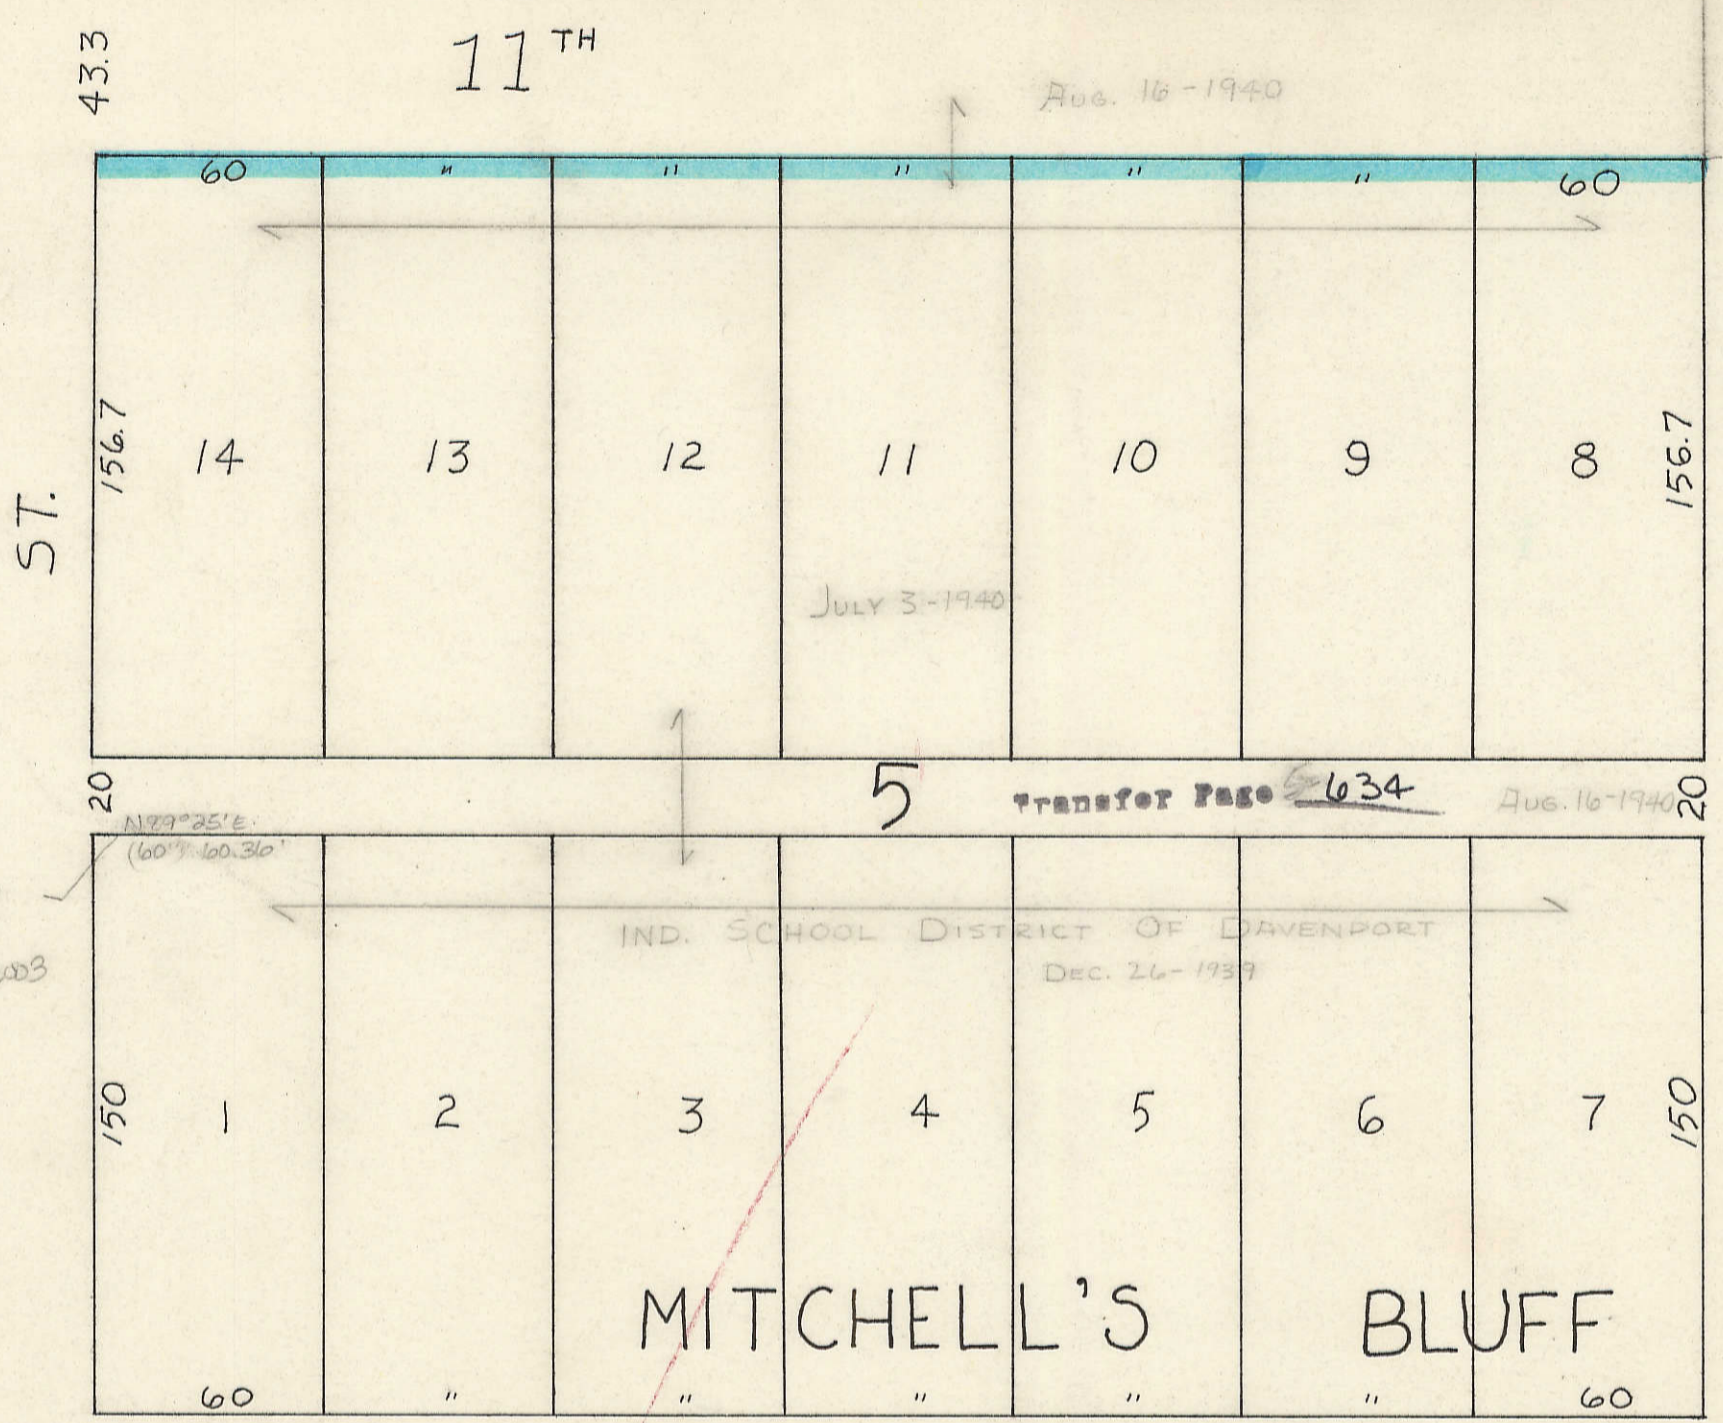 43.3
11TH
AUG. 16-1940
60 " " " " " 60
ST.
156.7 14 13 12 11 10 9 8 156.7
JULY 3-1940
20 5 Transfer Page 634 AUG. 16-1940 20
N89°25'E.
(60') 60.36'
IND. SCHOOL DISTRICT OF DAVENPORT
DEC. 26-1939
150 1 2 3 4 5 6 7 150
MITCHELL'S BLUFF
60 " " " " " 60